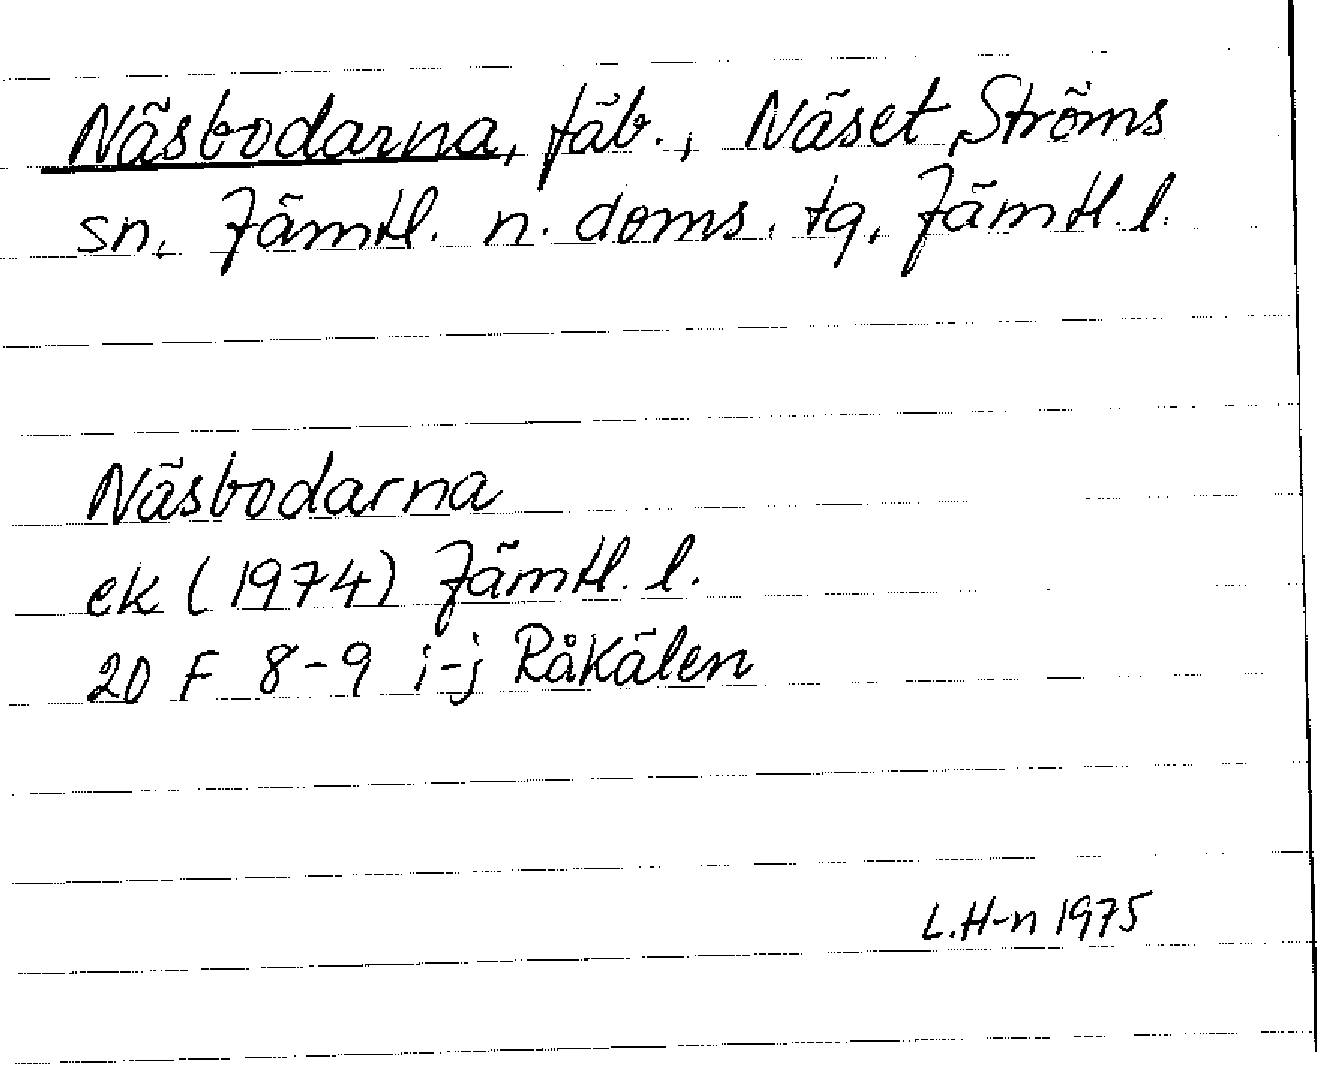 Näsbodarna, fäb., Näset, Ströms
sn, Jämtl. n. doms. tg, Jämtl. l.
Näsbodarna
ek (1974) Jämtl. l.
20 F 8-9 i-j Råkälen
L.H-n 1975